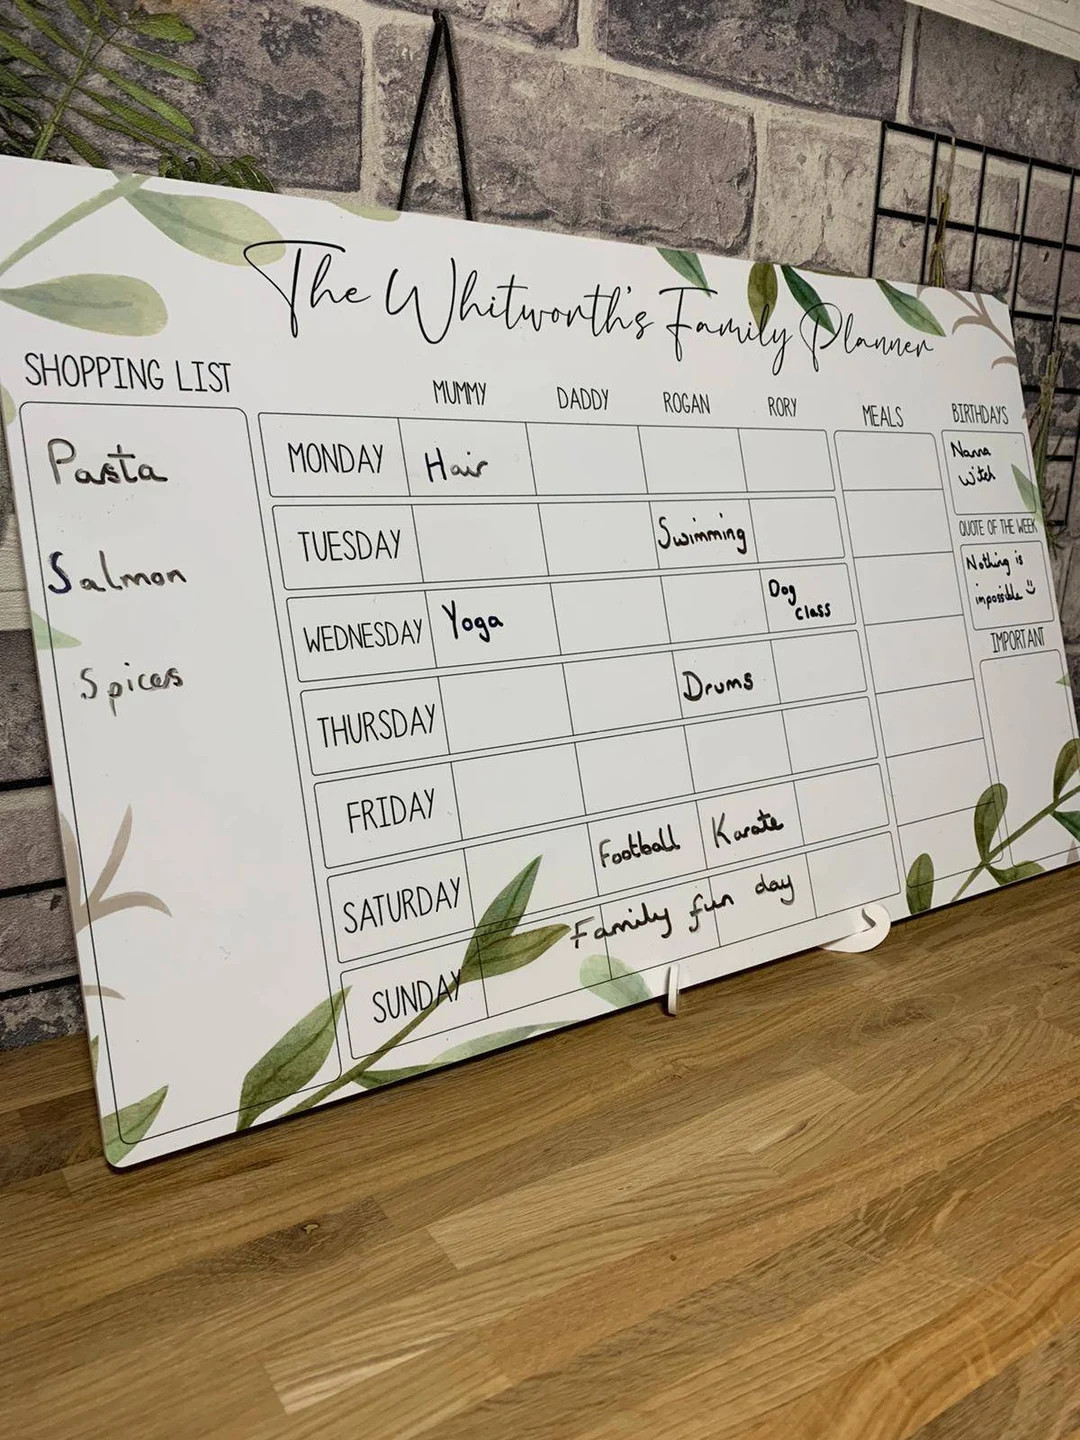 The Whitworth's Family Planner
SHOPPING LIST
Pasta
Salmon
Spices
MUMMY DADDY ROGAN RORY MEALS
MONDAY Hair
TUESDAY Swimming
WEDNESDAY Yoga Dog class
THURSDAY Drums
FRIDAY
SATURDAY Football Karate
SUNDAY Family fun day
BIRTHDAYS
Nanna
Witch
QUOTE OF THE WEEK
Nothing is
impossible
IMPORTANT